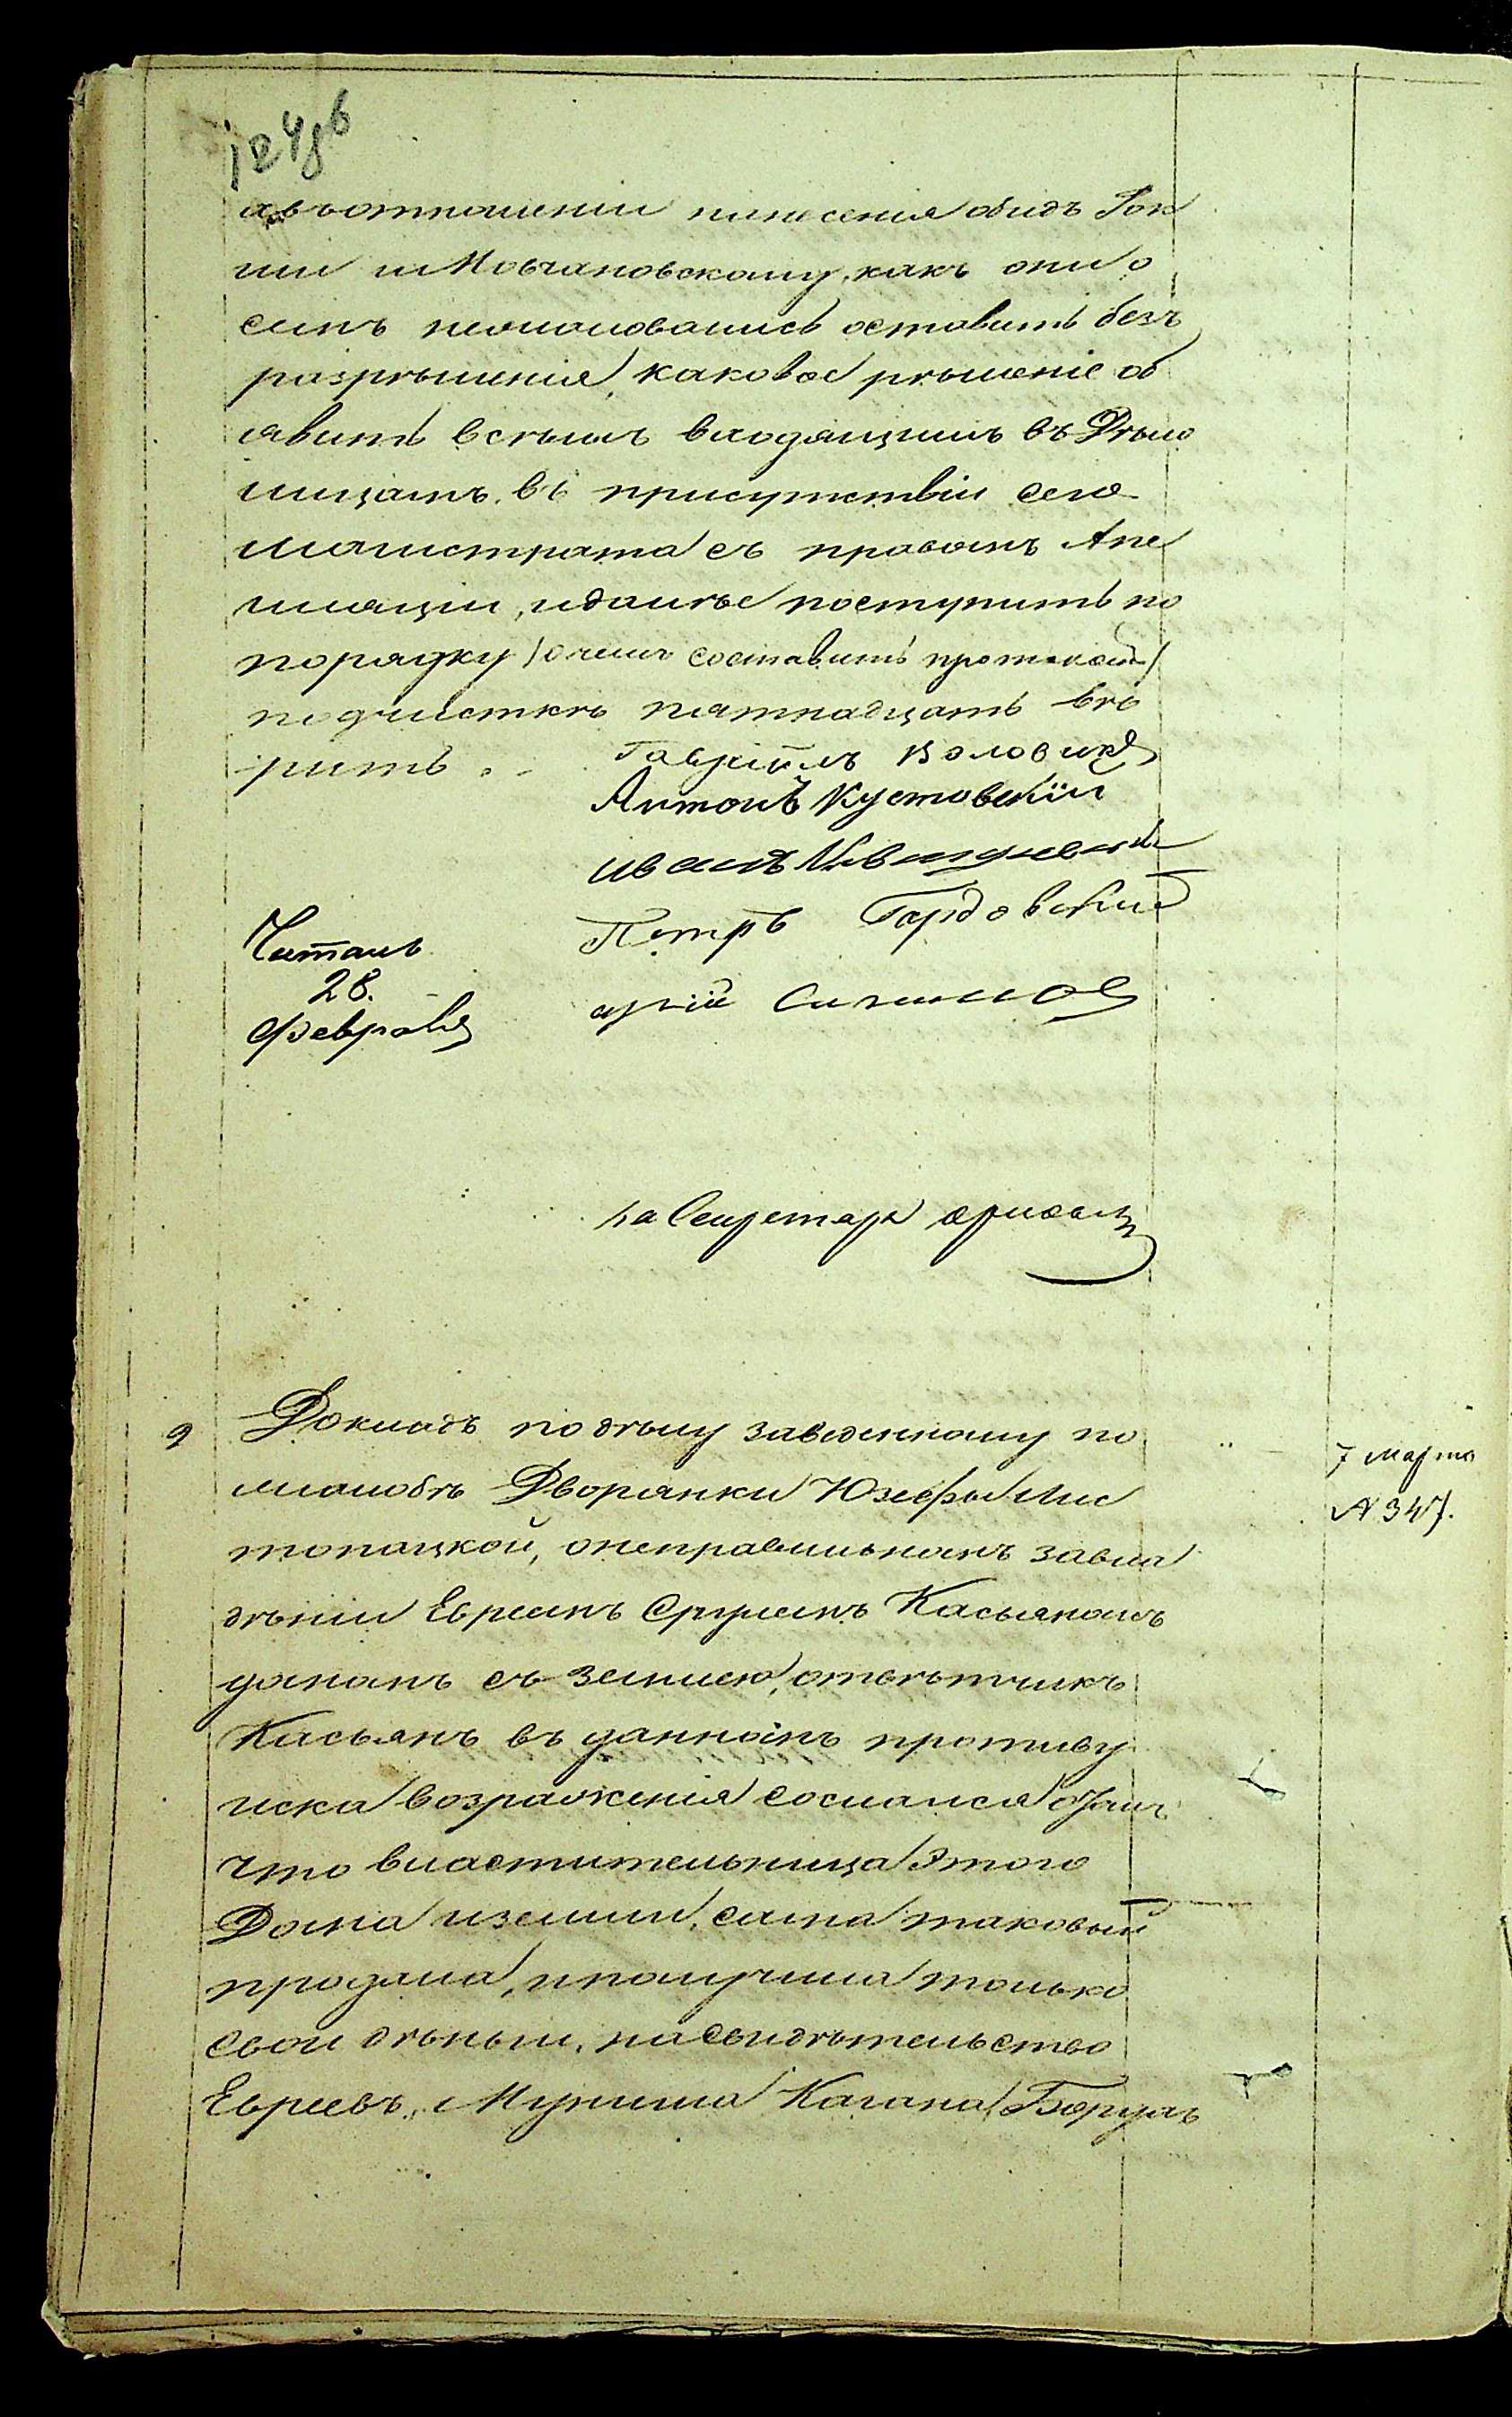 124об
а въ отношеніи нанесенія обидъ Гон
ти и Мовчановскому, какъ они о
семъ нежаловались оставить безъ
разрѣшенія, каковое рѣшеніе об
явить всѣмъ входящимъ въ Дѣло
лицамъ въ присутствіи сего
магистрата съ правомъ Апе
ляціи, и далѣе поступить по
порядку / о чемъ составить протоколъ /
подчисткѣ пятнадцать вѣ
рить.
Гавріилъ Воловикъ
Антонъ Кустовскій
Иванъ
Петръ Гордовскій
Читалъ
28.
Февраля
за Секретаря
9 Докладъ по дѣлу заведенному по
жалобѣ Дворянки Юзефы Лис
топацкой, о неправильномъ завла
дѣніи Евреемъ Срулемъ Касьяномъ
домомъ съ землею, отвѣтчикъ
Касьянъ въ данномъ противу
иска возраженія сослался о томъ
что властительница этого
Дома и земли, сама таковый
продала, и получила только
свои деньги, на свидѣтельство
Евреевъ, Муниша Кагана, Боруха
7 Марта
N 347.